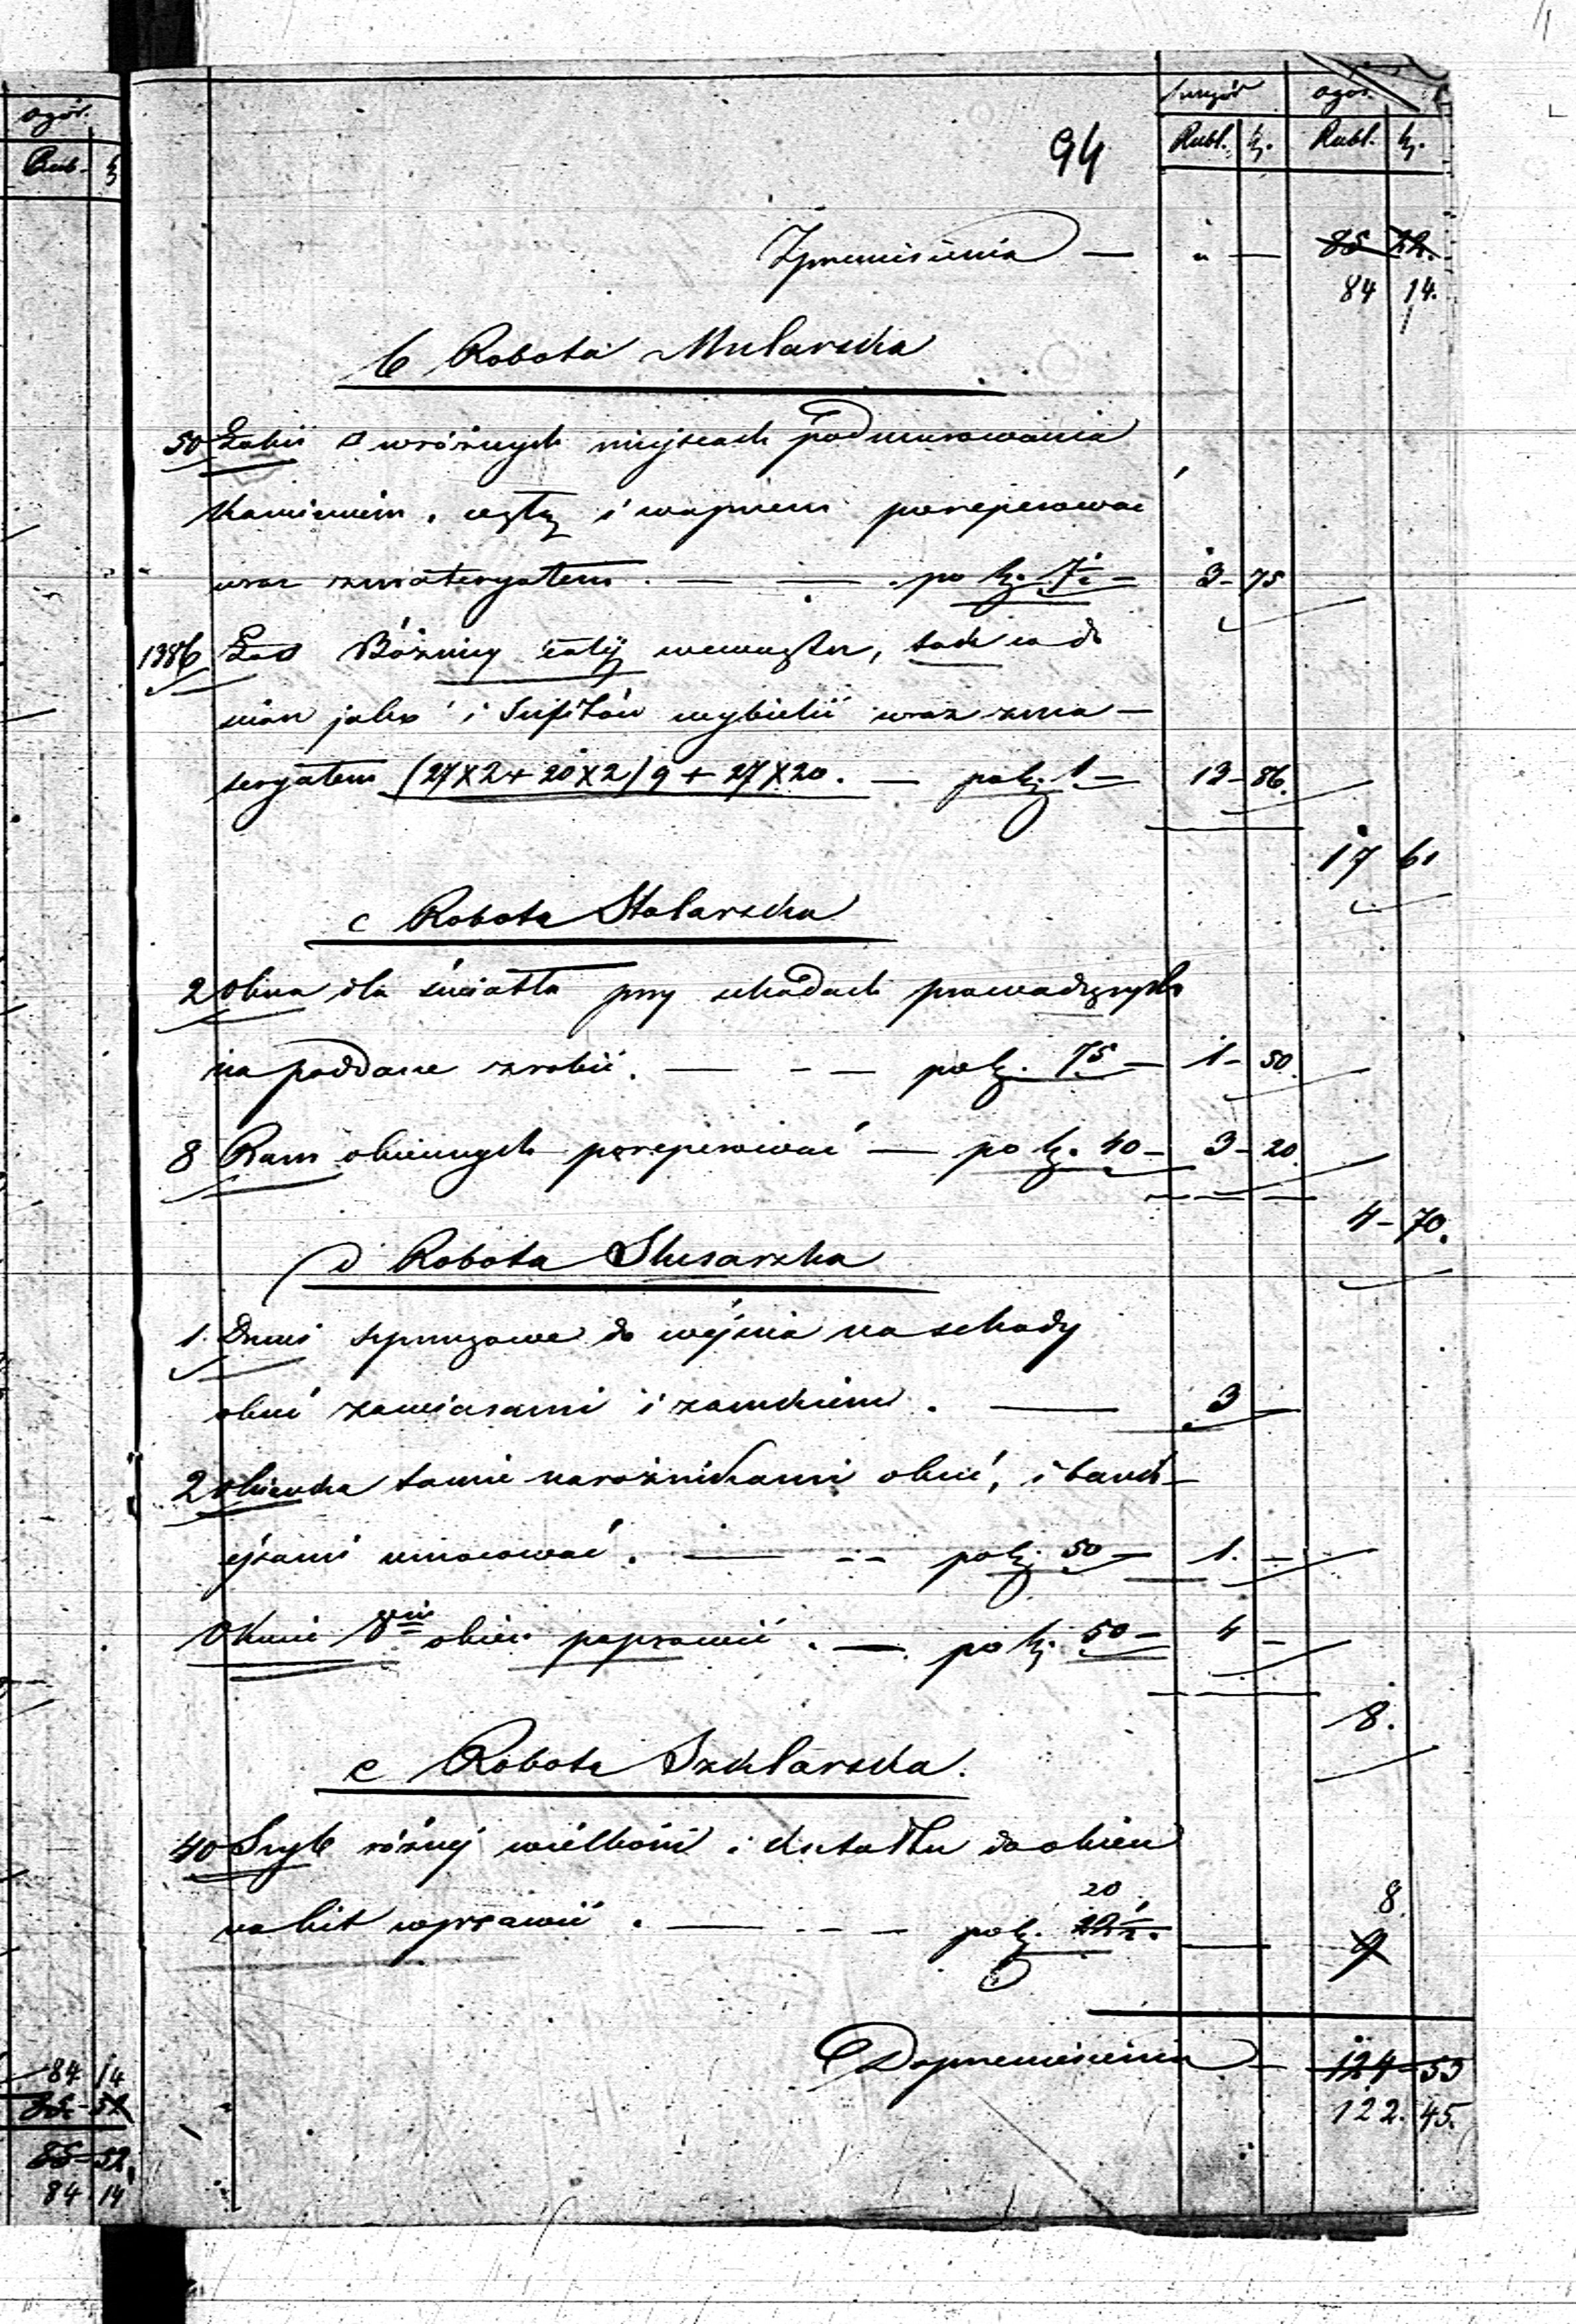 ogół.
Rub. k
94
szczegół ogół.
Rubl. k. Rubl. k.
Zprzeniesienia — „ — 85 22.
84 14.
b Robota Mularska
50 Łokci w różnych miejscach podmurowania
kamieniem, cegłą i wapnem poreperować
wraz zmateryałem. — — po k. 7½ — 3 - 75
1386 Łok Bóżnicy całej wewnątrz, tak co do
ścian jako i Sufitów wybielić wraz zma —
teryałem (27X2 + 20X2) 9 + 27X20. — po k. 1 — 13 - 86.
17 61
c Robota Stolarska
2 Okna dla światła przy schodach prowadzących
na poddasze zrobić. — - — po k. 75 — 1 - 50.
8 Ram okiennych poreperować — po k. 40 — 3 - 20.
4 - 70.
d Robota Slusarska
1. Drzwi szpungowe do wejścia na schody
okuć zawiasami i zamkiem. — 3 —
2 okienka tamie narożnikami okuć, i bank-
ejzami umocować. — - - po k. 50 — 1. —
Okucie 8miu okien poprawić. — po k. 50 — 4 —
8.
e Robota Szklarska.
40 Szyb różnej wielkości i kształtu do okien
20
8.
na kit wprawić. — - - — po k. 22½. — 9
Doprzeniesienia — 124 - 53
122. 45.
84 14
85 - 52
84 14